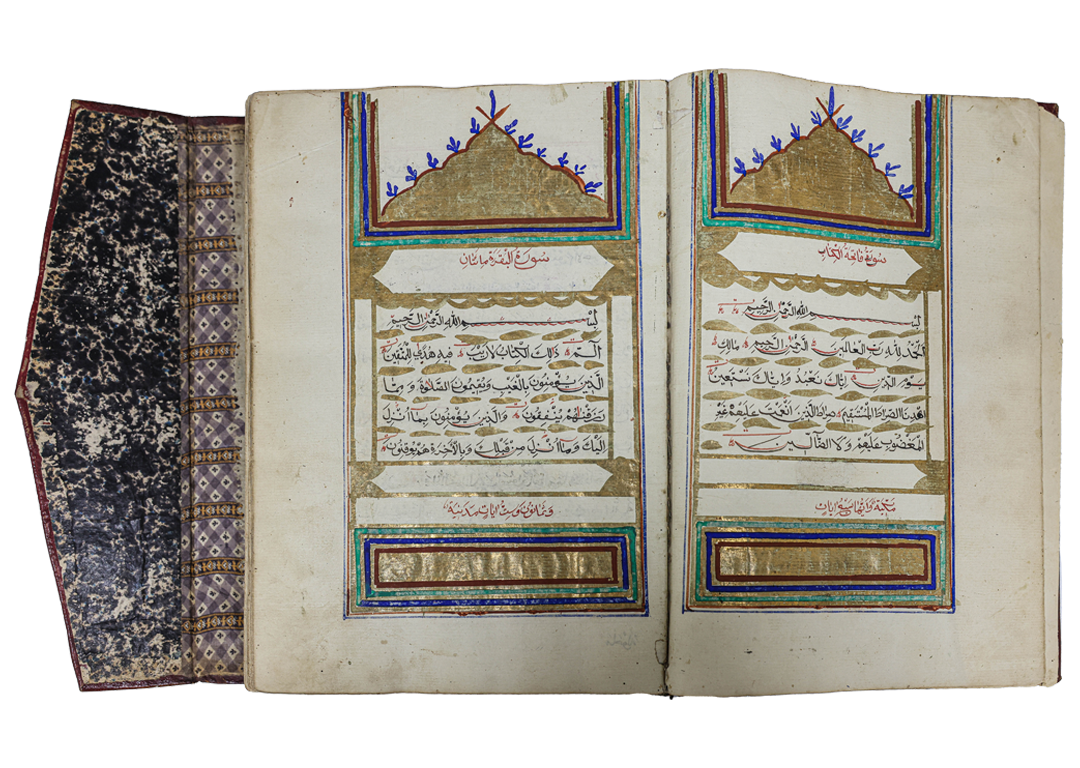 سورة فاتحة الكتاب
بسم الله الرحمن الرحيم
الحمد لله رب العالمين الرحمن الرحيم مالك
يوم الدين اياك نعبد واياك نستعين
اهدنا الصراط المستقيم صراط الذين انعمت عليهم غير
المغضوب عليهم ولا الضالين
مكية وايها سبع ايات
سورة البقرة مائتان
بسم الله الرحمن الرحيم
الم ذلك الكتاب لا ريب فيه هدى للمتقين
الذين يؤمنون بالغيب ويقيمون الصلوة ومما
رزقناهم ينفقون والذين يؤمنون بما انزل
اليك وما انزل من قبلك وبالاخرة هم يوقنون
وثمانون وست ايات مدنية